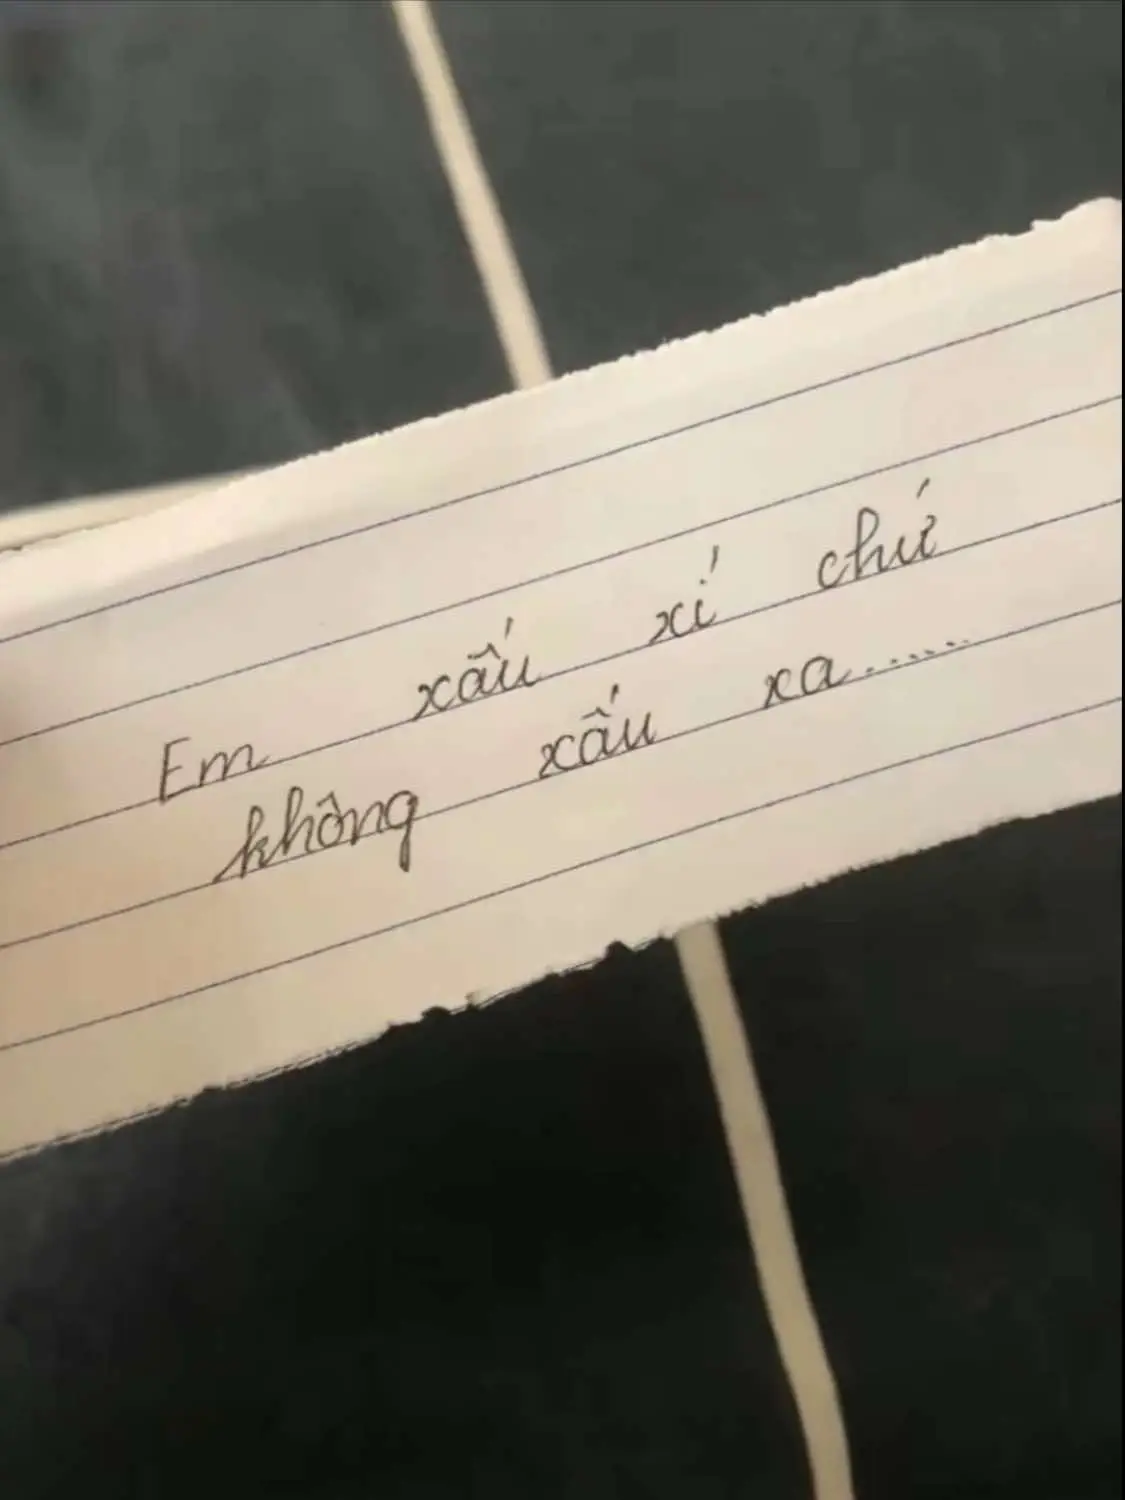 Em xấu xí chứ
không xấu xa.......